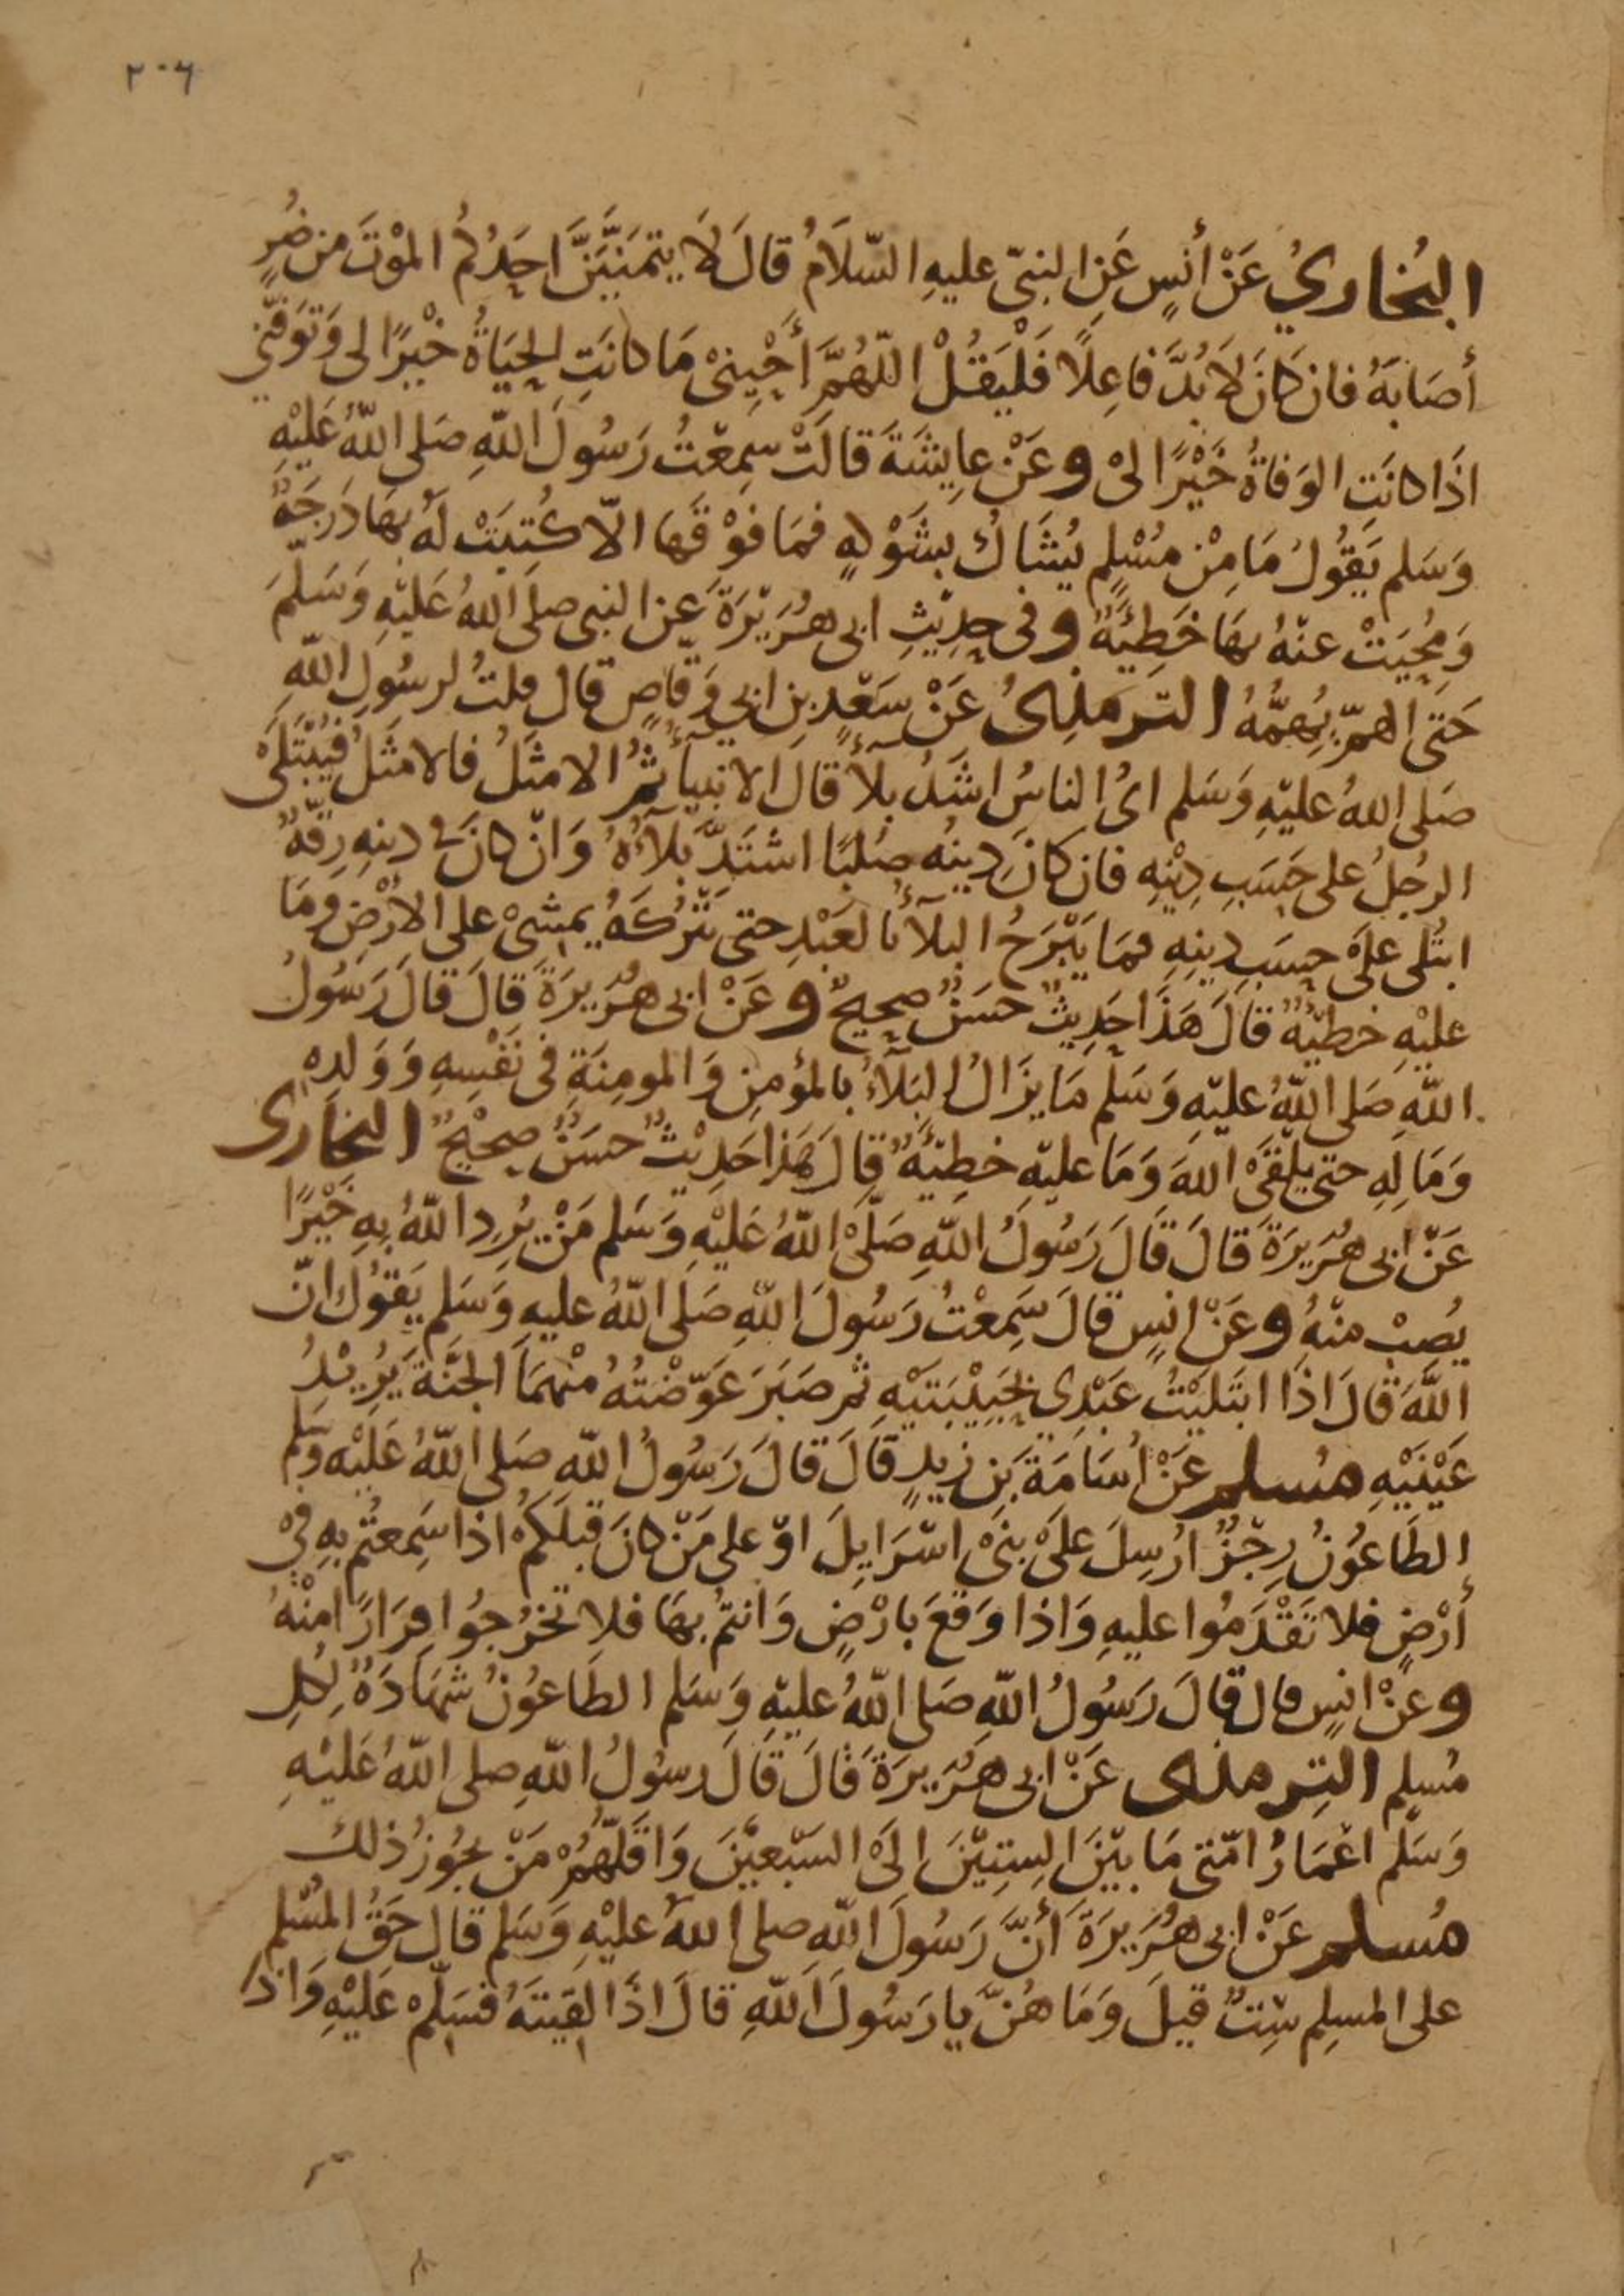 ٢٠٦
البُخاريُ عَنْ أنَسٍ عَنِ النبيّ عليهِ السّلَامُ قالَ لَا يتمَنَّيَنَّ احَدُكُمُ المْوْتَ من ضُرٍ
أصَابَهُ فان كَانَ لَا بُدَّ فاعِلًا فَلْيَقُلْ اللّهُمَّ أحْيِنِىْ مَا كانَتِ الحيَاةُ خيْرًا لى وَتوَفَّنِي
اذَا كانَت الوَفاةُ خَيْرًا لىْ وعَنْ عايِشَةَ قالَتْ سَمِعْتُ رَسُولَ اللّهِ صَلى اللّهُ عَلَيْهِ
وَسَلم يَقُولُ مَا مِنْ مُسْلِمٍ يُشَاكُ بشَوْكةٍ فمَا فوْقَهَا الّا كُتِبَتْ لَهُ بهَا دَرجَةٌ
وَمُحِيَتْ عنْهُ بهَا خَطِيئَةٌ وفى حدِيْثِ ابى هُرَيْرَةَ عن النبى صلى اللهُ عَليْهِ وَسَلّمَ
حَتى الهمِّ يُهِمُّهُ الترمذىُ عَنْ سَعْدِ بنِ ابي وَقّاصٍ قال قلتُ لرسُولِ اللّهِ
صَلى اللهُ عليْهِ وَسَلم اىُ الناسُ اشَدُ بلآءً قالَ الانبيآءُ ثمُ الامثَلُ فالامثَلُ فيُبْتَلىَ
الرجُلُ على حَسَبِ دِيْنِهِ فان كانَ دِينُه صُلبًا اشتَدَّ بَلآؤُهُ وَانْ كانَ فى دينهِ رِقّةٌ
ابتُلى علَى حسَبِ دِينِهِ فمَا يَبْرَحُ البلآءُ بالعَبْدِ حتى يَتْرُكَهُ يمشىْ على الارْضِ ومَا
عليْهِ خطيّةٌ قالَ هَذَا حَدِيثٌ حسَنٌ صحِيحٌ وعَنْ ابى هُرَيرَةَ قالَ قالَ رَسُولُ
اللّهِ صَلى اللّهُ عليْهِ وَسَلّم مَا يزَالُ البَلآءُ بالمؤمِنِ وَالمومِنَةِ فى نَفْسِهِ وَوَلدِهِ
وَمَالِهِ حتى يلْقَى اللهَ وَمَا عليْهِ خطيّةٌ قالَ هَذا حَدِيْثٌ حسَنٌ صحِيْحٌ البخَارى
عَنْ ابى هُرَيرَةَ قالَ قَالَ رَسُولُ اللّهِ صَلّىْ اللّهُ عَليْهِ وَسَلم مَنْ يُرِدِ اللّهُ بِهِ خَيْرًا
يُصِبْ منْهُ وعَنْ انسٍ قالَ سَمِعْتُ رَسُولَ اللّهِ صَلَى اللّهُ عليهِ وَسَلم يَقوُلُ انّ
اللّهَ قالَ اذَا ابتَليْتُ عبْدِى بحَبِيْبَتيْهِ ثم صَبَرَ عَوّضْتُهُ منْهمَا الجنَّةَ يُرِيْدُ
عَيْنَيْهِ مُسلم عَنْ اُسَامَةَ بَنِ زيدٍ قَالَ قالَ رَسُولُ اللّهِ صَلى اللّهُ عَليْهِ وَسَلم
الطَاعُوْنُ رِجْزٌ ارُسِلَ علَىْ بنىْ اسْرَايِلَ اوْ على مَنْ كانَ قبلَكمُ اذا سَمِعتُم بهِ فىْ
أرْضٍ فلا تَقْدَمُوا عليهِ وَاذا وَقعَ بارْضٍ وَانتمُ بهَا فلا تخرُجُوا فِرَارًا منْهُ
وعَنْ انسٍ قال قالَ رَسُولُ اللّهِ صَلى اللّهُ عليْهِ وَسَلم الطَاعُوْنُ شهَادَةٌ لِكُلِ
مُسلِم التِرمذى عَنْ ابى هُرَيرَةَ قَالَ قَالَ رسُولُ اللّهِ صلى اللّهُ عَليْهِ
وَسَلّم اعْمَارُ امّتى مَا بيْنَ السِتِيْنَ الَى السَبْعيْنَ وَاقَلّهُمْ مَنْ يجُوزُ ذلك
مُسلم عَنْ ابى هُرَيرَةَ أنَّ رَسُولَ اللّهِ صلى اللّهُ عليْهِ وَسَلم قال حَقُ المُسْلم
على المسلِمِ سِتٌ قيلَ وَمَا هُنَّ يا رَسُولَ اللّهِ قالَ اذَا لقِيتَهُ فسَلّمْ عَليْهِ وَاذا